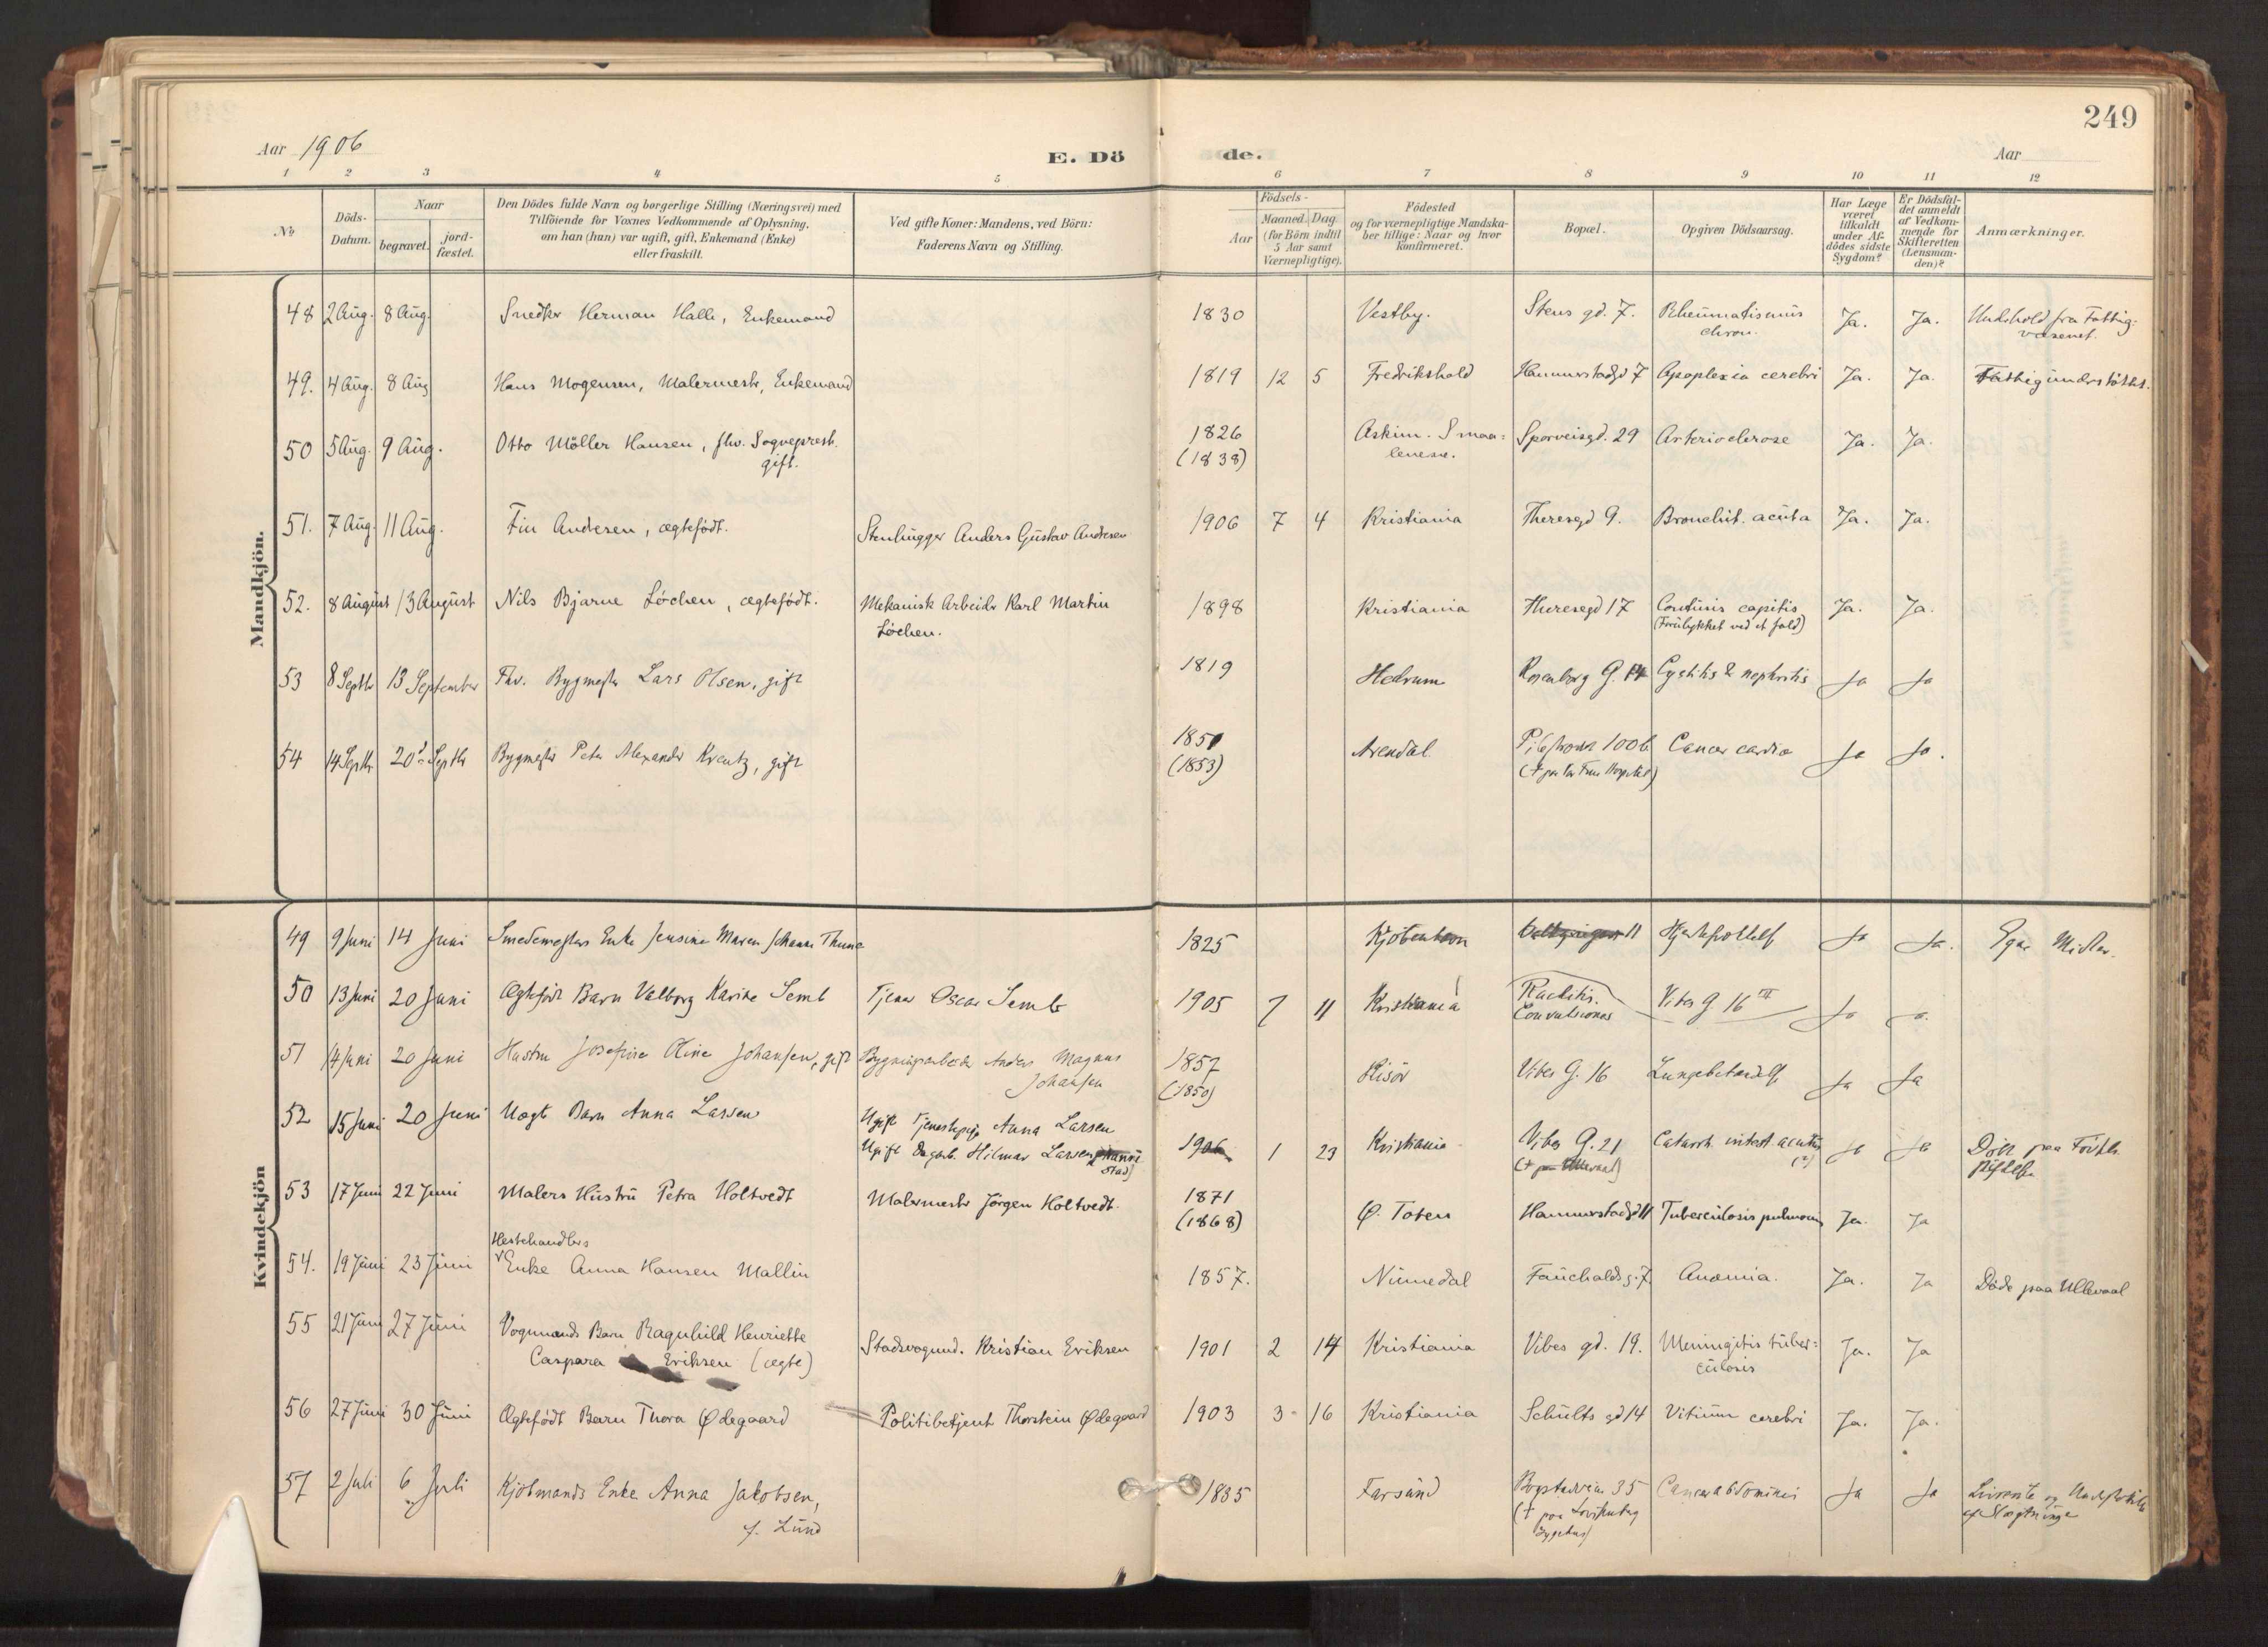 249
Aar 1906
E. Dö
de.
Aar
1 2 3 4 5 6 7 8 9 10 11 12
No
Döds-
Datum.
Naar
begravet.
jord-
fæstet.
Den Dödes fulde Navn og borgerlige Stilling (Næringsvei) med
Tilföiende for Voxnes Vedkommende af Oplysning,
om han (hun) var ugift, gift, Enkemand (Enke)
eller fraskilt.
Ved gifte Koner: Mandens, ved Börn:
Faderens Navn og Stilling.
Födsels-
Aar
Maaned. Dag
(for Börn indtil
5 Aar samt
Værnepligtige).
Födested
og for værnepligtige Mandska-
ber tillige: Naar og hvor
Konfirmeret.
Bopæl.
Opgiven Dödsaarsag.
Har Læge
været
tilkaldt
under Af-
dödes sidste
Sygdom?
Er Dödsfal-
det anmeldt
af Vedkom-
mende for
Skifteretten
(Lensman-
den)?
Anmærkninger.
Mandkjön.
48 2 Aug. 8 Aug. Snedker Herman Halle, Enkemand 1830 Vestby. Stens gd. 7. Rheumatismus Ja. Ja. Undehold fra Fattig-
chron.
væsenet.
49. 4 Aug. 8 Aug Hans Mogensen, Malermestr, Enkemand 1819 12 5 Fredrikshald Hammerstadgd 7 Apoplexia cerebri Ja. Ja. Fattigunderstöttet.
50 5 Aug. 9 Aug. Otto Möller Hansen, fhv. Sogneprest. 1826 Askim. Smaa- Sporveisgd. 29 Arteriosclerose Ja. Ja.
gift. (1838) lenene.
51. 7 Aug. 11 Aug. Fin Andersen, ægtefödt. Stenhugger Anders Gustav Andresen 1906 7 4 Kristiania Theresegd 9. Bronchit. acuta Ja. Ja.
52. 8 August 13 August Nils Bjarne Løchen, ægtefödt. Mekanisk Arbeider Karl Martin 1898 Kristiania Theresegd 17 Contusis capitis Ja. Ja.
Løchen. (Forulykket ved et fald)
53 8 Septbr 13 September Fhv. Bygmester Lars Olsen, gift 1819 Hedrum Rosenborg G. 14 Cystitis & nephritis Ja Ja
54 14 Septbr 20 Septbr Bygmester Peter Alexander Kreutz, gift 1851 Arendal. Pilestrædet 100b Cancer cardia Ja Ja.
(1853) (+ paa Vor Frues Hospital)
Kvindekjön
49 9 Juni 14 Juni Smedemesters Enke Jensine Maren Johanne Thune 1825 Kjöbenhavn 11 Hjertefeil Ja Ja. Egne Midler.
50 13 Juni 20 Juni Ægtefödt Barn Valborg Karine Semb Tjener Oscar Semb 1905 7 11 Kristiania Rachitis. Vibes G. 16 III Ja Ja
Convulsiones
51 14 Juni 20 Juni Hustru Josefine Oline Johansen, gift Bygningsarbeider Anders Magnus 1857 Risör Vibes G. 16 Lungebetændelse Ja Ja
Johansen (1850)
52 15 Juni 20 Juni Uægte Barn Anna Larsen Ugift Tjenestepige Anna Larsen
Ugift Dagarb. Hilmar Larsen 1906 1 23 Kristiania Vibes G. 21 Catarrh intest acutus Ja Ja Döde paa Födsels-
stad) (?) stiftelsen
53 17 Juni 22 Juni Malers Hustru Petra Holtvedt Malermester Jörgen Holtvedt. 1871 Ø. Toten Hammerstadgd 11 Tuberculosis pulmonis Ja. Ja
(1868)
Hestehandlers
54. 19 Juni 23 Juni Enke Anna Hansen Mallin 1857. Numedal Fauchaldsg. 7 Anæmia. Ja. Ja Döde paa Ullevaal
55 21 Juni 27 Juni Vogmands Barn Ragnhild Henriette Stadsvognmd. Kristian Eriksen 1901 2 14 Kristiania Vibes gd. 19. Meningitis tuber- Ja. Ja
Caspara Eriksen (ægte) culosis
56 27 Juni 30 Juni Ægtefödt Barn Thora Ødegaard Politibetjent Thorstein Ødegaard 1903 3 16 Kristiania Schults gd 14 Vitium cerebri Ja. Ja.
57 2 Juli 6 Juli Kjöbmands Enke Anna Jakobsen, 1835 Farsund Bogstadveien 35 Cancer abdominis Ja Ja Livrente og Understöttelse
f. Lund (+ paa Lovisenberg af Slægtninge
Sygehus)